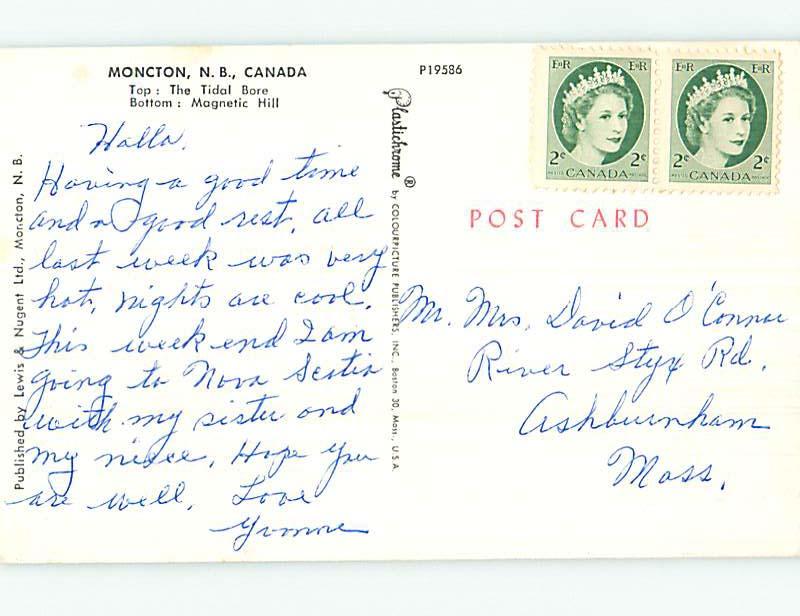 MONCTON, N. B., CANADA
Top : The Tidal Bore
Bottom : Magnetic Hill
P19586
Published by Lewis & Nugent Ltd., Moncton, N. B.
Plastichrome ® by COLOURPICTURE PUBLISHERS, INC., Boston 30, Mass., U.S.A.
E II R E II R
2¢ 2¢
CANADA
POSTES POSTAGE
E II R E II R
2¢ 2¢
CANADA
POSTES POSTAGE
POST CARD
Hallo.
Having a good time
and a good rest, all
last week was very
hot, nights are cool.
This week end I am
going to Nova Scotia
with my sister and
my niece. Hope you
are well. Love
Yvonne
Mr. Mrs. David O'Connor
River Styx Rd.
Ashburnham
Mass.